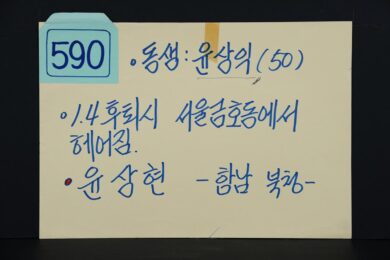 590
• 동생: 윤상익(50)
• 1.4 후퇴시 서울금호동에서
헤어짐.
• 윤상현 -함남 북청-